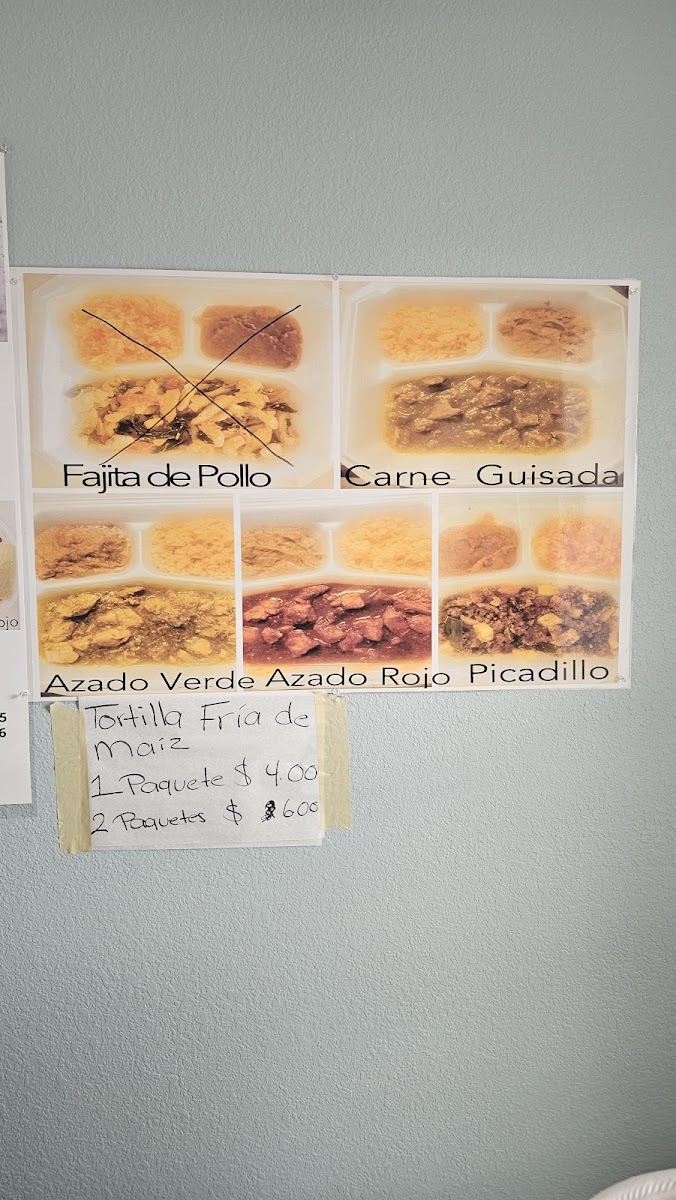 Fajita de Pollo
Carne Guisada
Azado Verde
Azado Rojo
Picadillo
ojo
5
6
Tortilla Fría de
maiz
1 Paquete $ 4.00
2 Paquetes $ 6.00